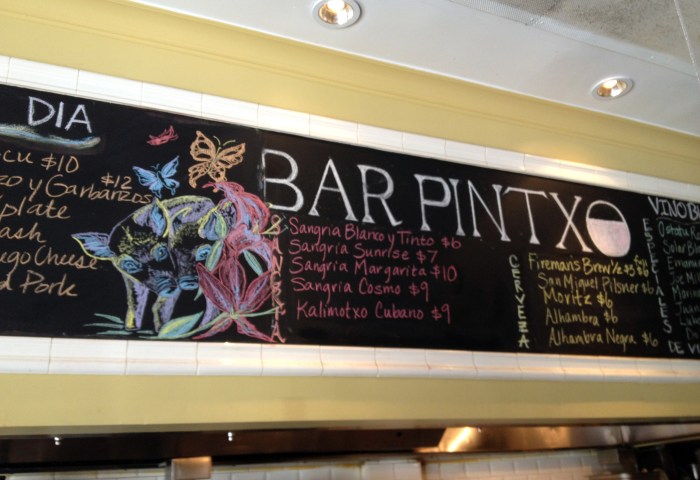 DIA
$10
y Garbanzos $12
plate
ash
Cheese
Pork
BAR PINTXO
SANGRIA
Sangria Blanco y Tinto $6
Sangria Sunrise $7
Sangria Margarita $10
Sangria Cosmo $9
Kalimotxo Cubano $9
CERVEZA
Fireman's Brew
San Miguel Pilsner $6
Moritz $6
Alhambra $6
Alhambra Negra $6
VINO
ESPECIALES
DE